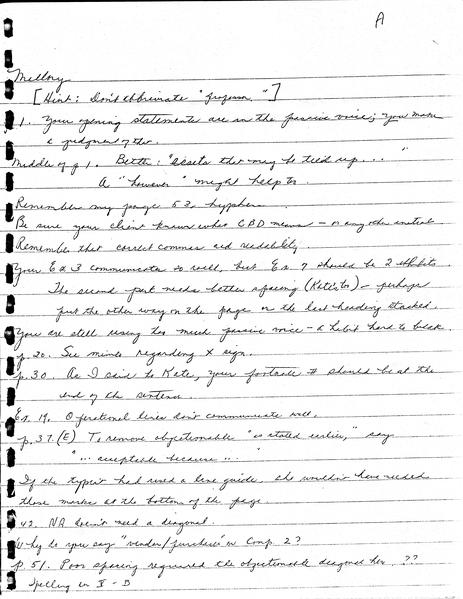 A
Mellory
[Hint: Don't abbreviate "
1. Your opening statements are in the passive voice; you make
a judgment
Middle of p 1. Better: "assets that may be tied up . . . "
A "however" might help to
Remember my page 53, hyphen
Be sure your client knows what CBD means - or any other initial
Remember that correct commas aid readability.
Your Ex 3 communicates so well, but Ex. 7 should be 2 exhibits
The second part needs better spacing - perhaps
put the other way on the page or the last heading stacked.
You are still using too much passive voice - a habit hard to break.
p. 20. See minds regarding x sign.
p. 30. As I said to Kate, your footnote # should be at the
end of the sentence.
Ex. 19. Operational lines don't communicate well.
p. 37. (E) To remove objectionable "as stated earlier," say
" . . . acceptable because . . . "
If the typist had used a line guide, she wouldn't have needed
those marks at the bottom of the page.
42. NA doesn't need a diagonal.
Why do you say "vendor/ in Comp. 2?
p. 51. Poor spacing required the objectionable diagonal here. ??
Spelling in V - B